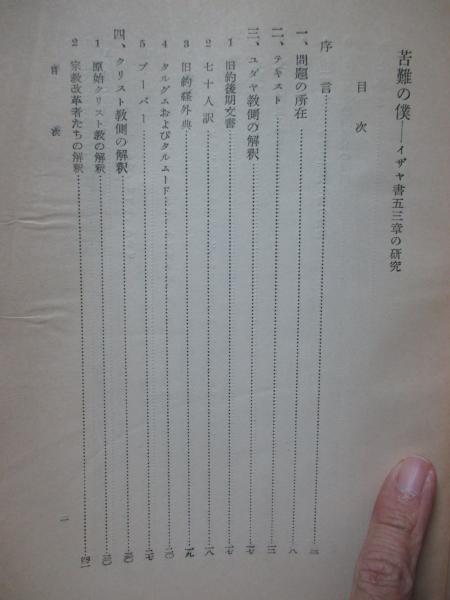 苦難の僕――イザヤ書五三章の研究
目次
序言
一、問題の所在……八
二、テキスト……一三
三、ユダヤ教側の解釈……一七
1 旧約後期文書……一七
2 七十人訳……一八
3 旧約経外典……一九
4 タルグムおよびタルムード……二〇
5 ブーバー……二七
四、クリスト教側の解釈……三〇
1 原始クリスト教の解釈……三〇
2 宗教改革者たちの解釈……四一
目次
一